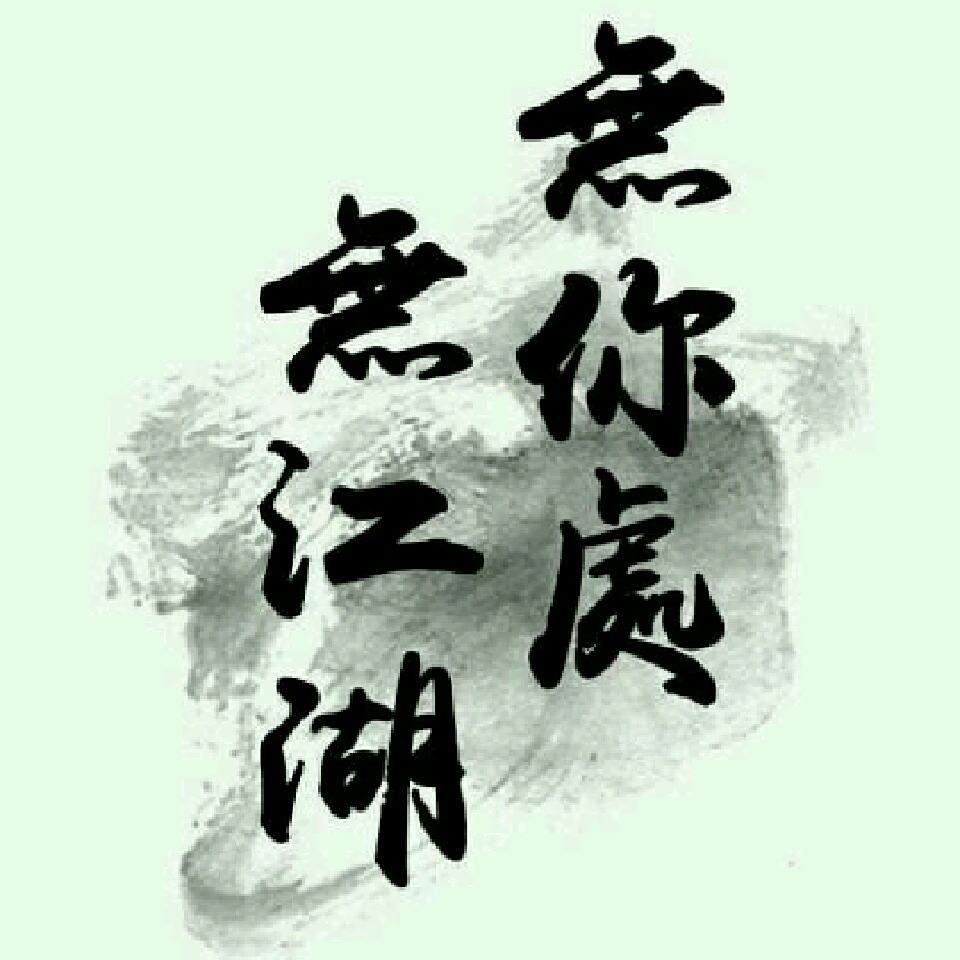 無你處
無江湖